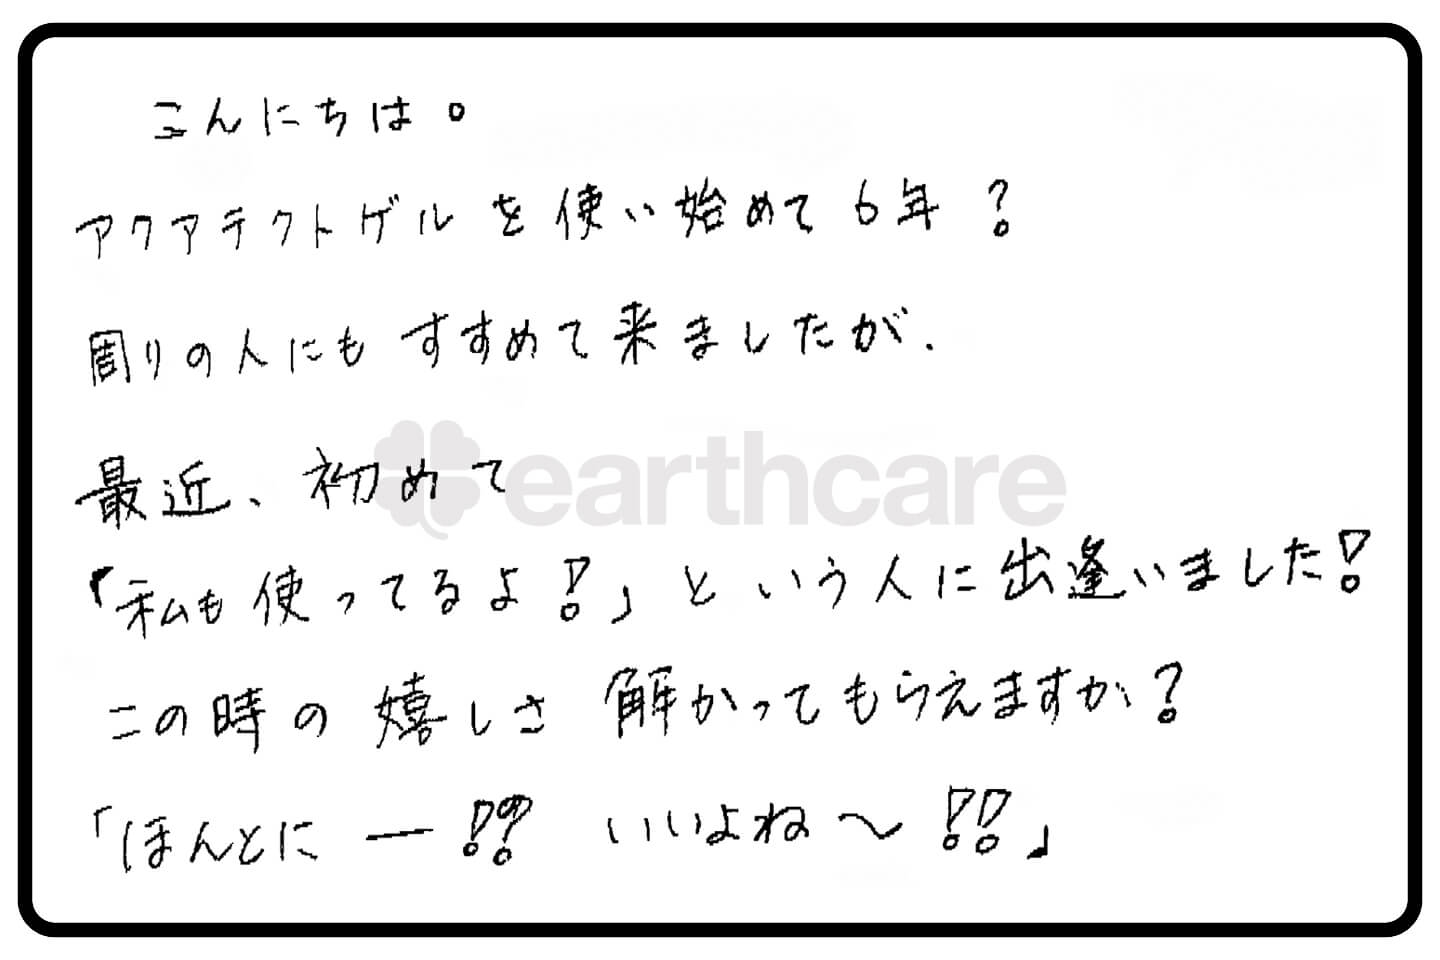 こんにちは。
アクアテクトゲルを使い始めて6年？
周りの人にもすすめて来ましたが、
最近、初めて
earthcare
「私も使ってるよ！」という人に出逢いました！
この時の嬉しさ 解かってもらえますか？
「ほんとにー！？ いいよね〜！！」